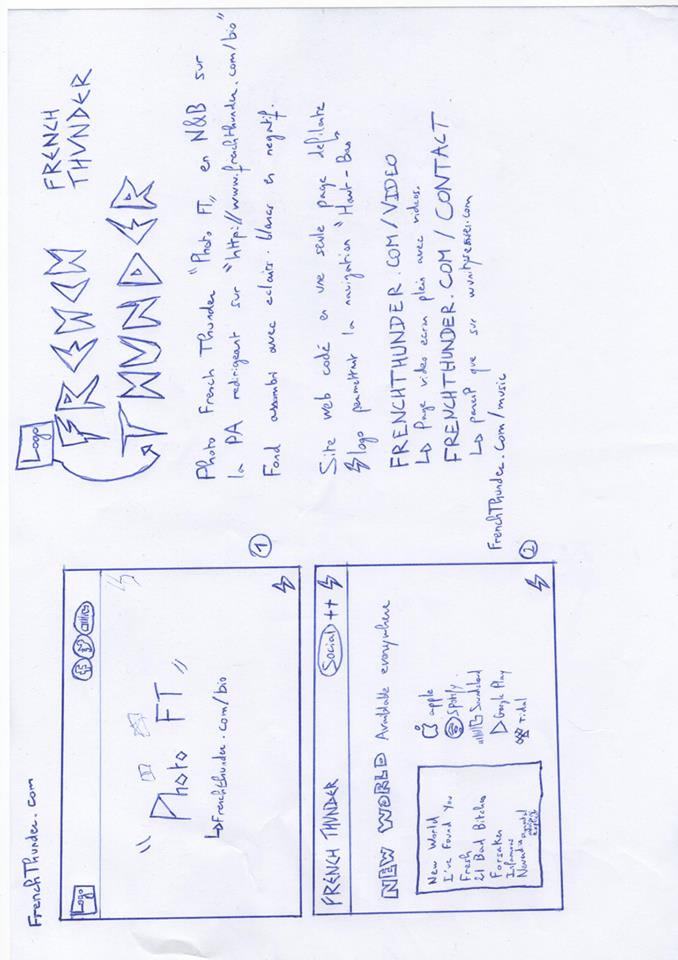 FrenchThunder.com
Logo
"Photo FT"
Frenchthunder.com/bio
1
FRENCH THUNDER
Social ++
NEW WORLD Available everywhere
New World
I've Found You
Fresh
21 Bad Bitches
Forsaken
Infamous
apple
Spotify
Soundcloud
Google Play
Tidal
2
Logo
FRENCH
THUNDER
FRENCH
THUNDER
Photo French Thunder "Photo FT" en N&B sur
la PA redirigeant sur "http://www.frenchthunder.com/bio"
Fond assombri avec eclairs blancs en negatif.
Site web codé en une seule page defilante
logo permettant la navigation "Haut-Bas"
FRENCHTHUNDER.COM/VIDEO
Page video ecran plein avec videos.
FRENCHTHUNDER.COM/CONTACT
pareil que sur
FrenchThunder.com/music